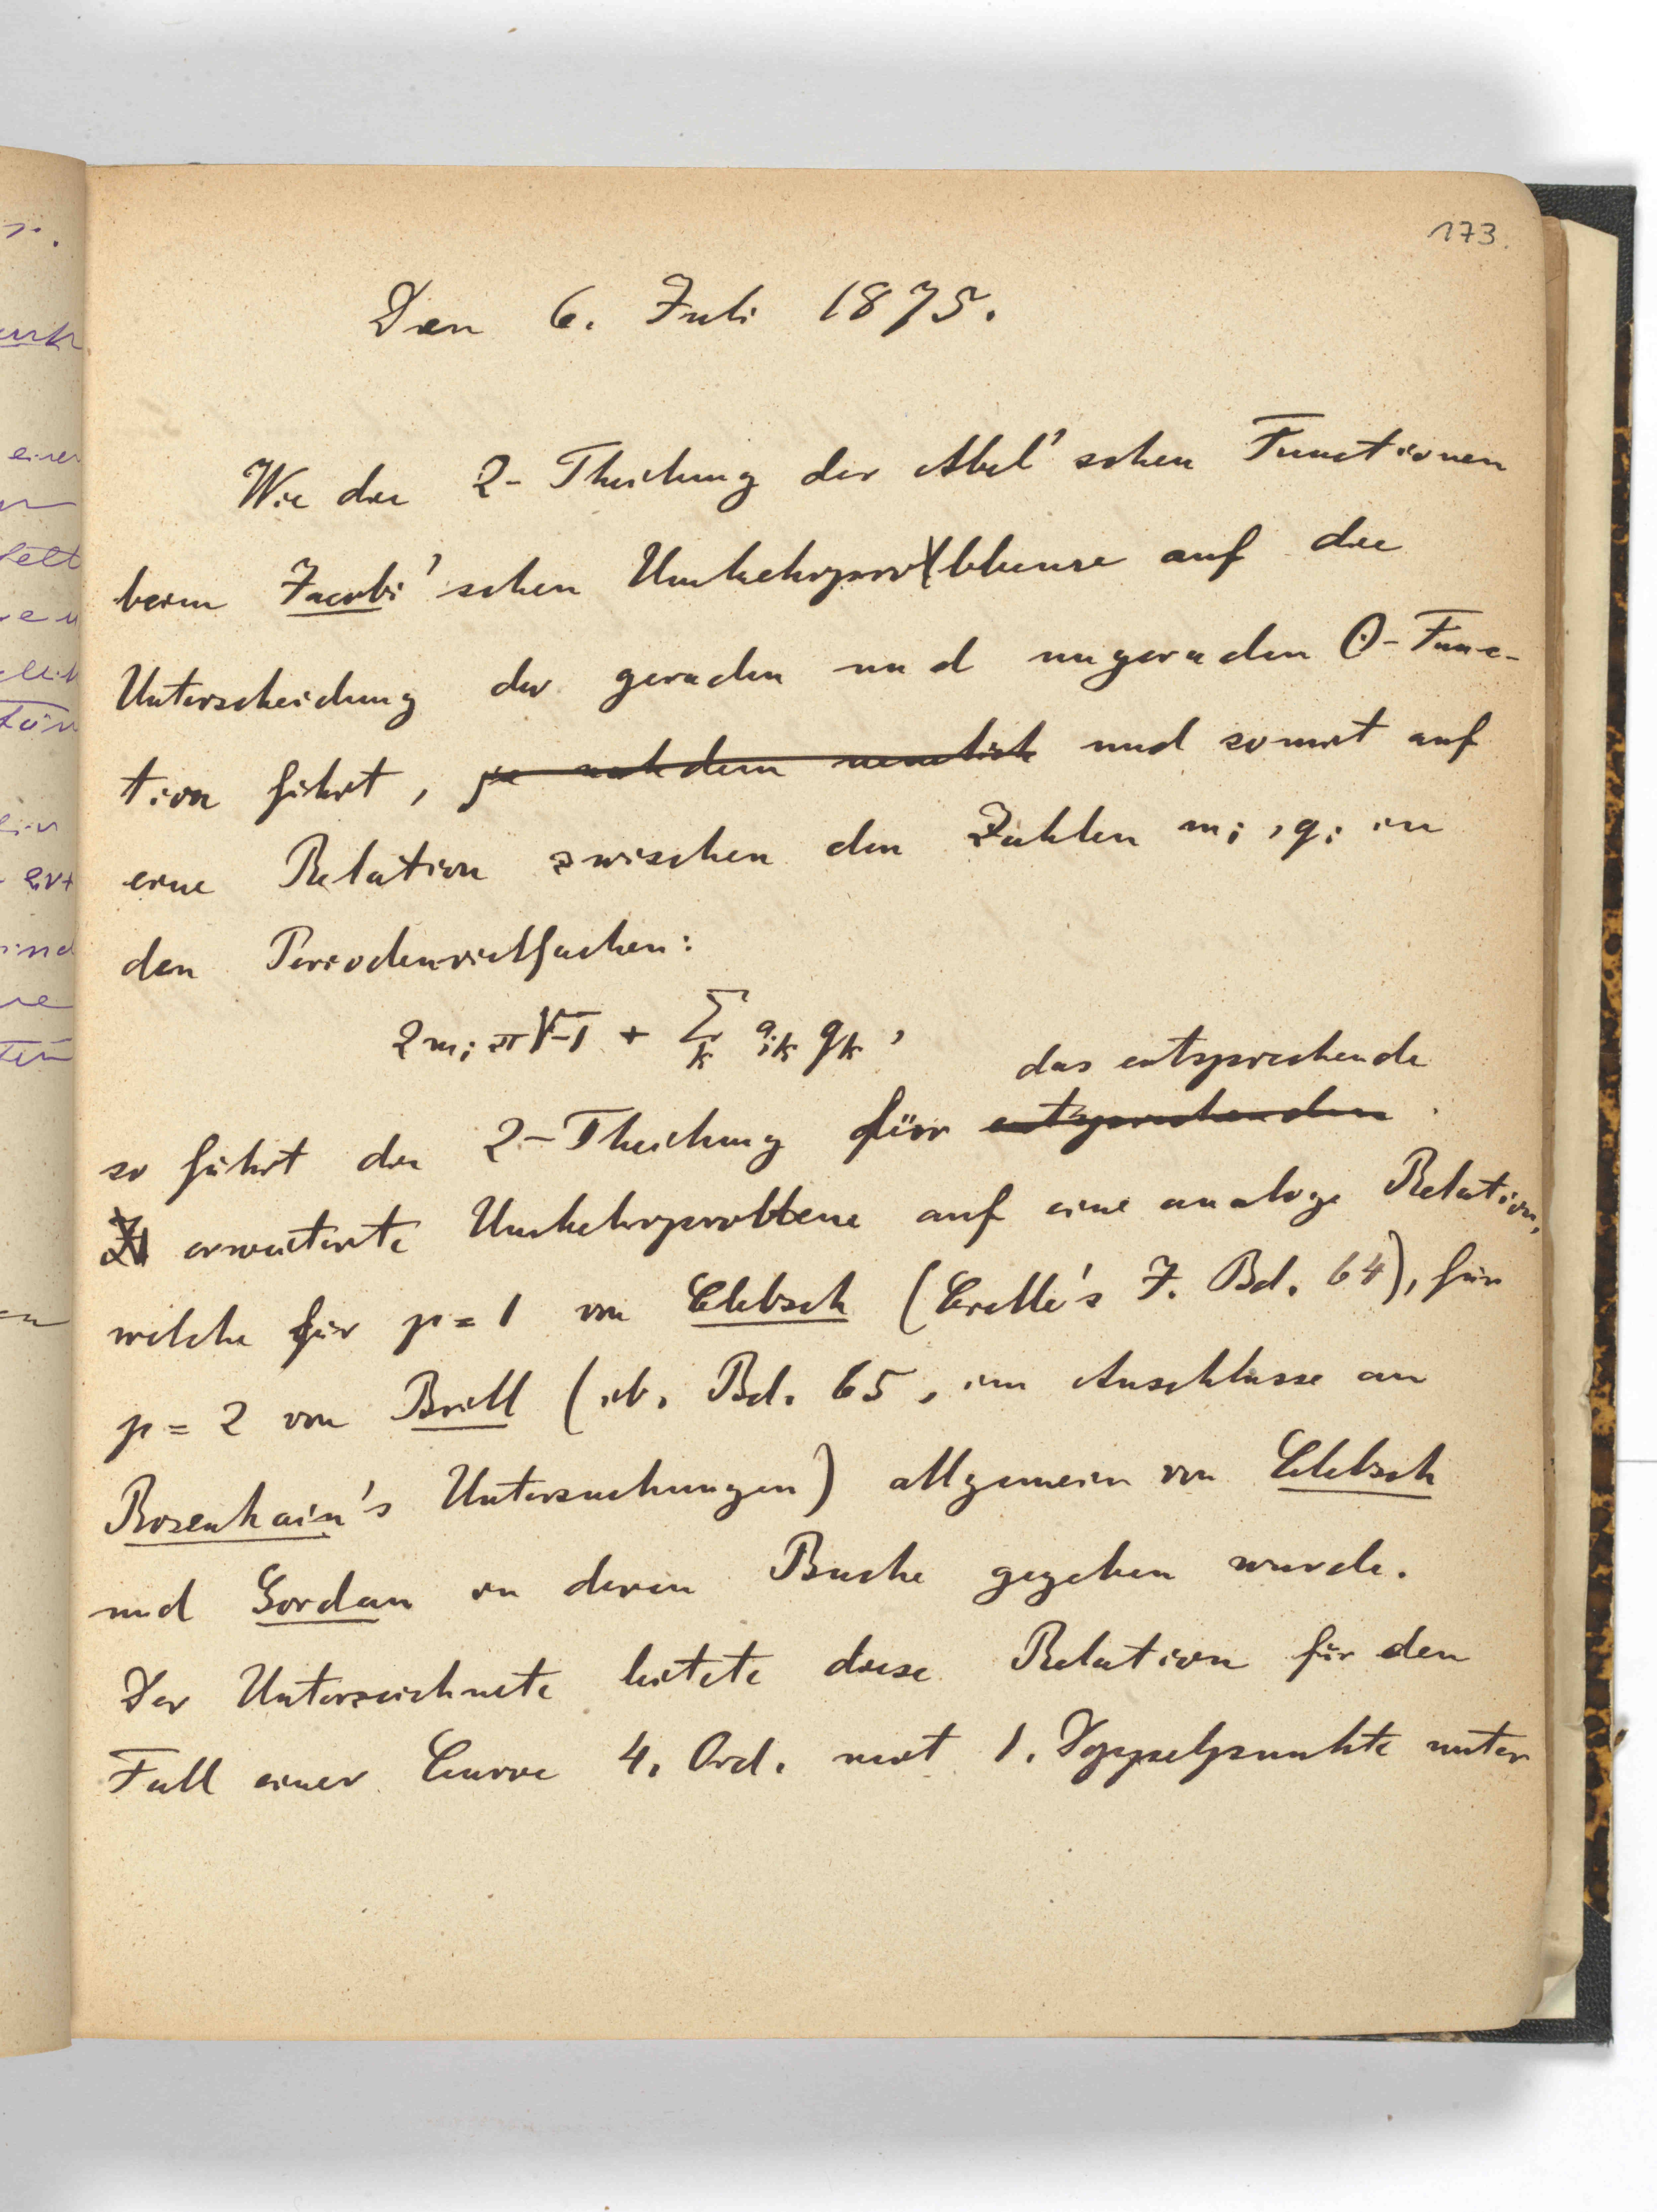 173.
Den 6. Juli 1875.
Wie die 2-Theilung der Abel'schen Functionen
beim Jacobi'schen Umkehrprobleme auf die
Unterscheidung der geraden und ungeraden Θ-Func-
tion führt, je nachdem nemlich und somit auf
eine Relation zwischen den Zahlen m_i, q_i in
den Periodenvielfachen:
2m_i π√-1 + Σ_k a_ik q_k,
das entsprechende
so führt die 2-Theilung für entsprechenden
erweiterte Umkehrproblem auf eine analoge Relation,
welche für p=1 von Clebsch (Crelle's J. Bd. 64), für
p=2 von Brill (ib. Bd. 65, im Anschlusse an
Rosenhain's Untersuchungen) allgemein von Clebsch
und Gordan in deren Buche gegeben wurde.
Der Unterzeichnete leitete diese Relation für den
Fall einer Curve 4. Ord. mit 1. Doppelpunkte unter